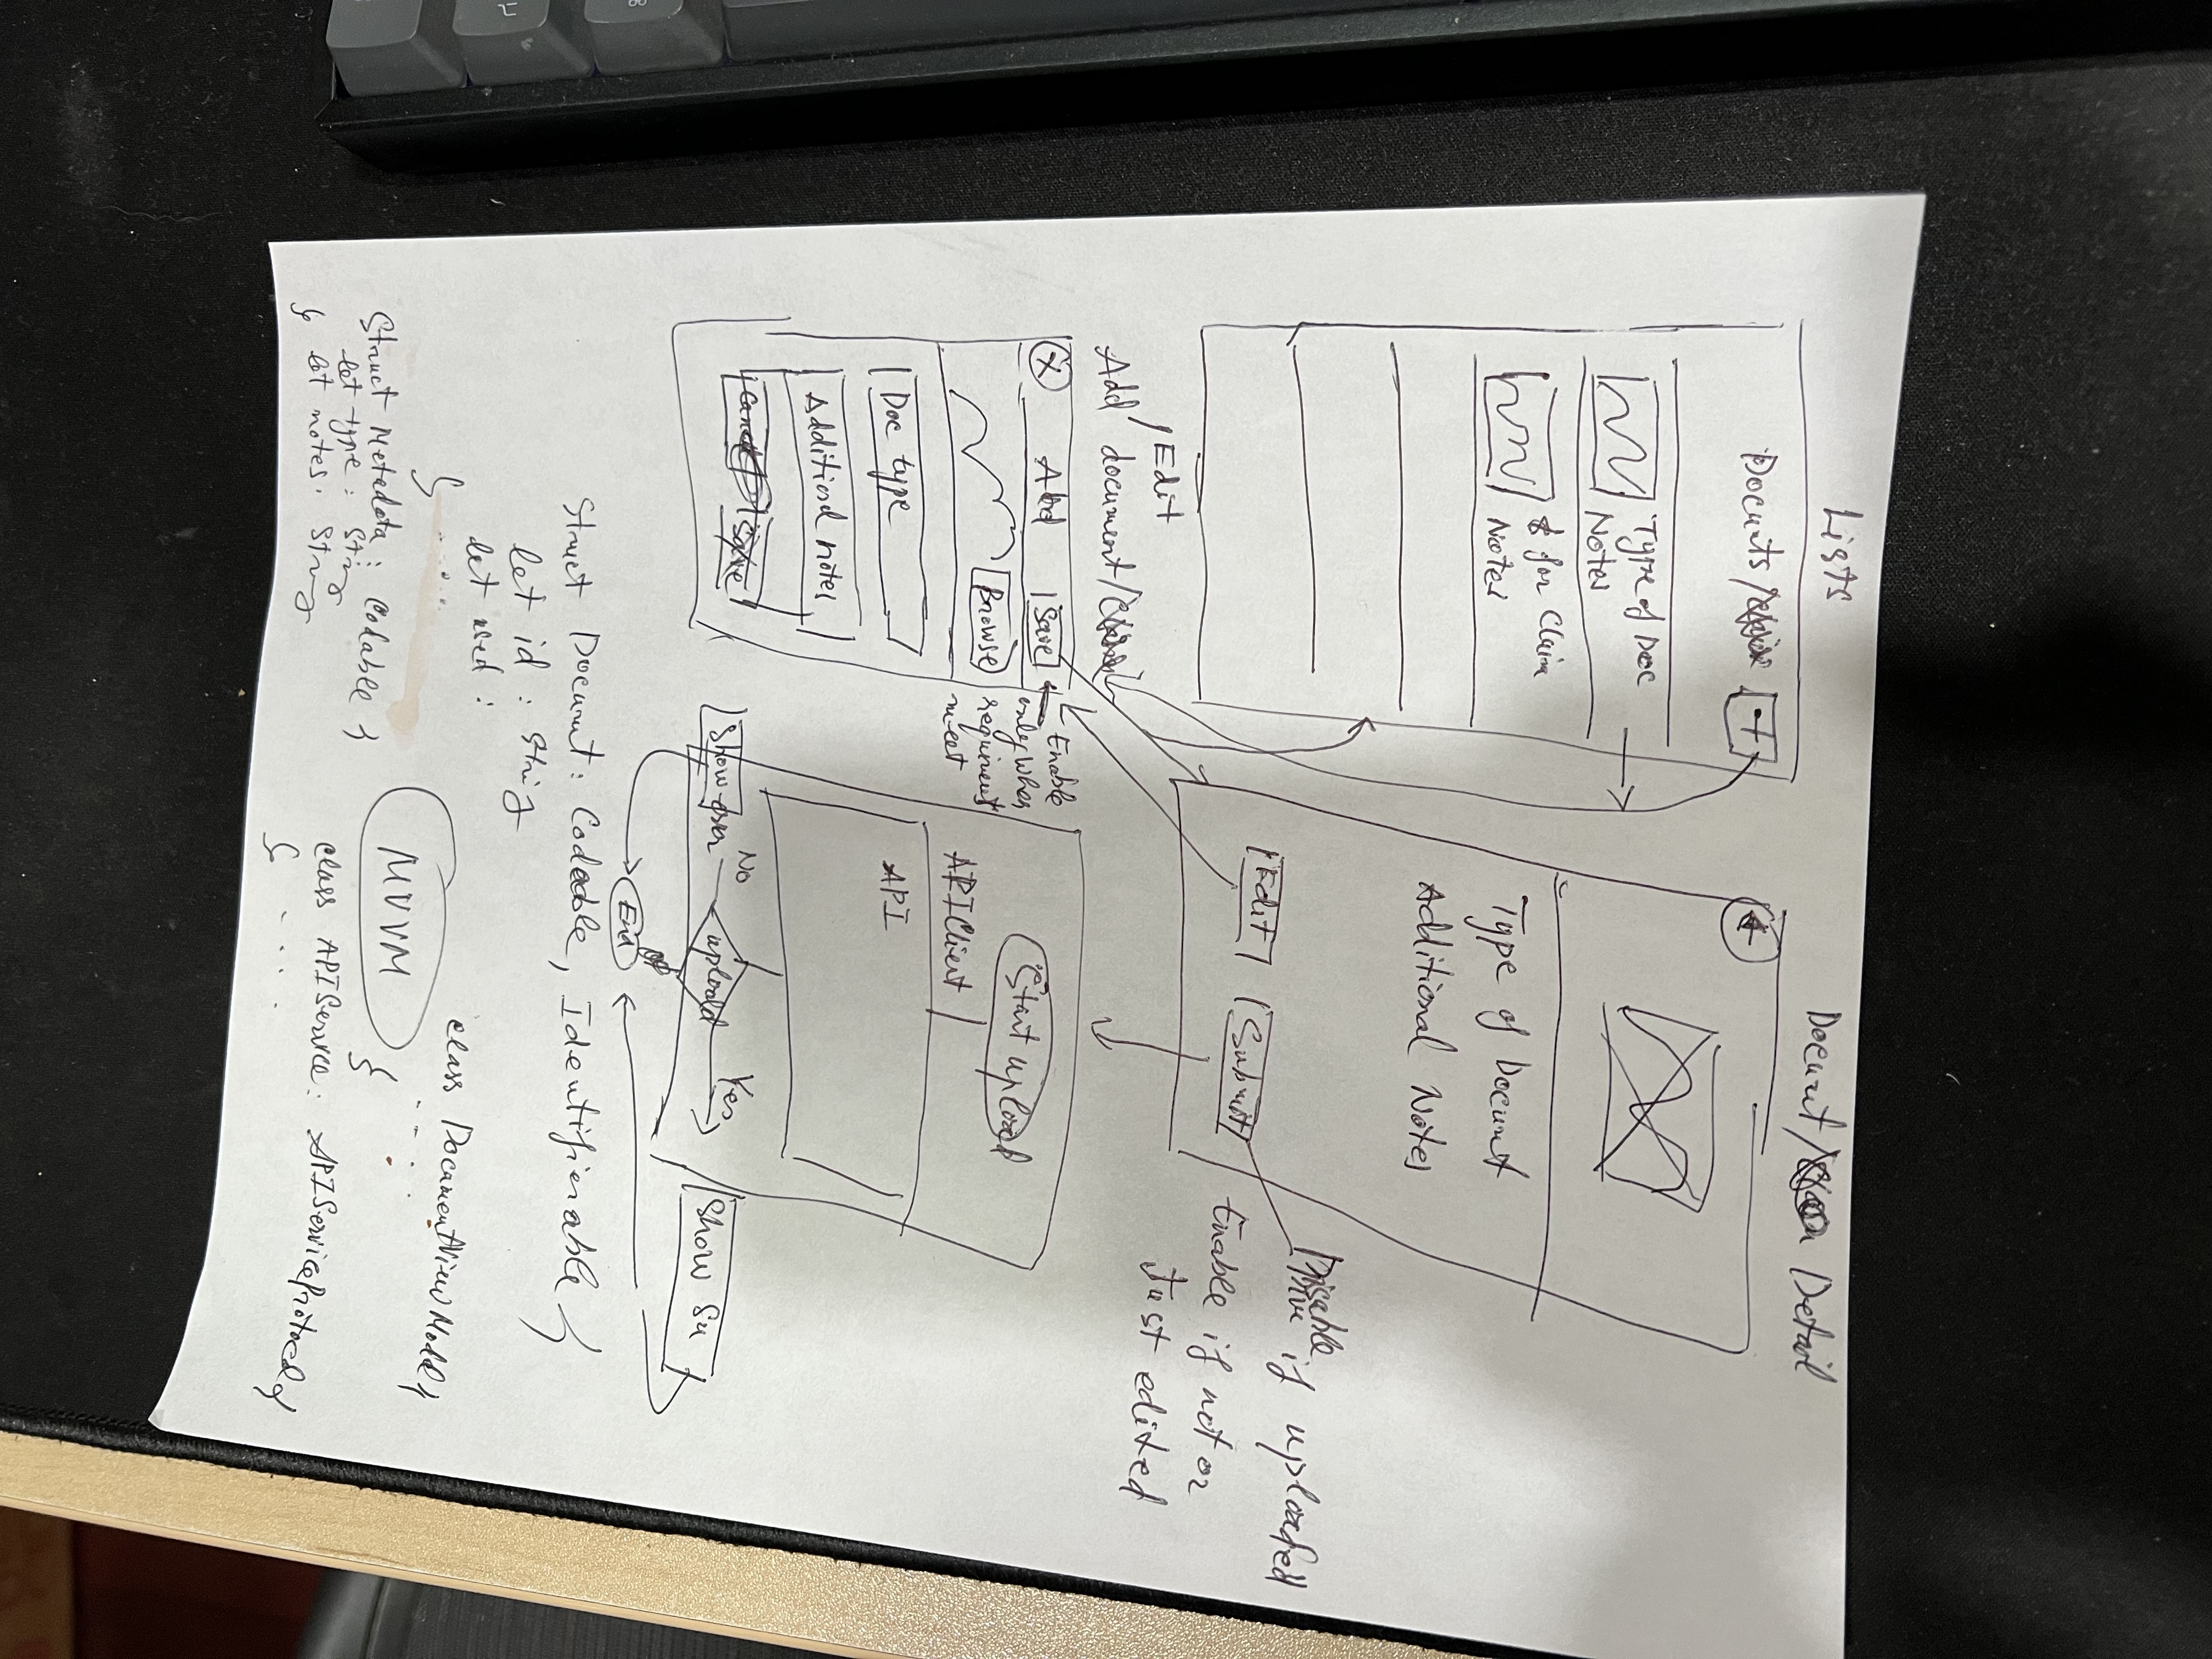 Lists
Documents/
+
Type of Doc
Notes
for Claim
Notes
Document/ Detail
←
Type of Document
Additional Notes
Edit
Submit
Disable if uploaded
Enable if not or
Just edited
/Edit
Add document/
X
Add
Save
Enable
only when
requirement
meet
Browse
Doc type
Additional notes
Cancel
Save
Start upload
APIClient
API
upload
No
Yes
Show
Show Su
End
Struct Document: Codable, Identifierable {
let id : String
let
.....
}
Struct Metedata : Codable {
let type : String
let notes : String
}
class DocumentViewModel {
.....
}
MVVM
class APIService : APIServiceProtocol {
.....
}